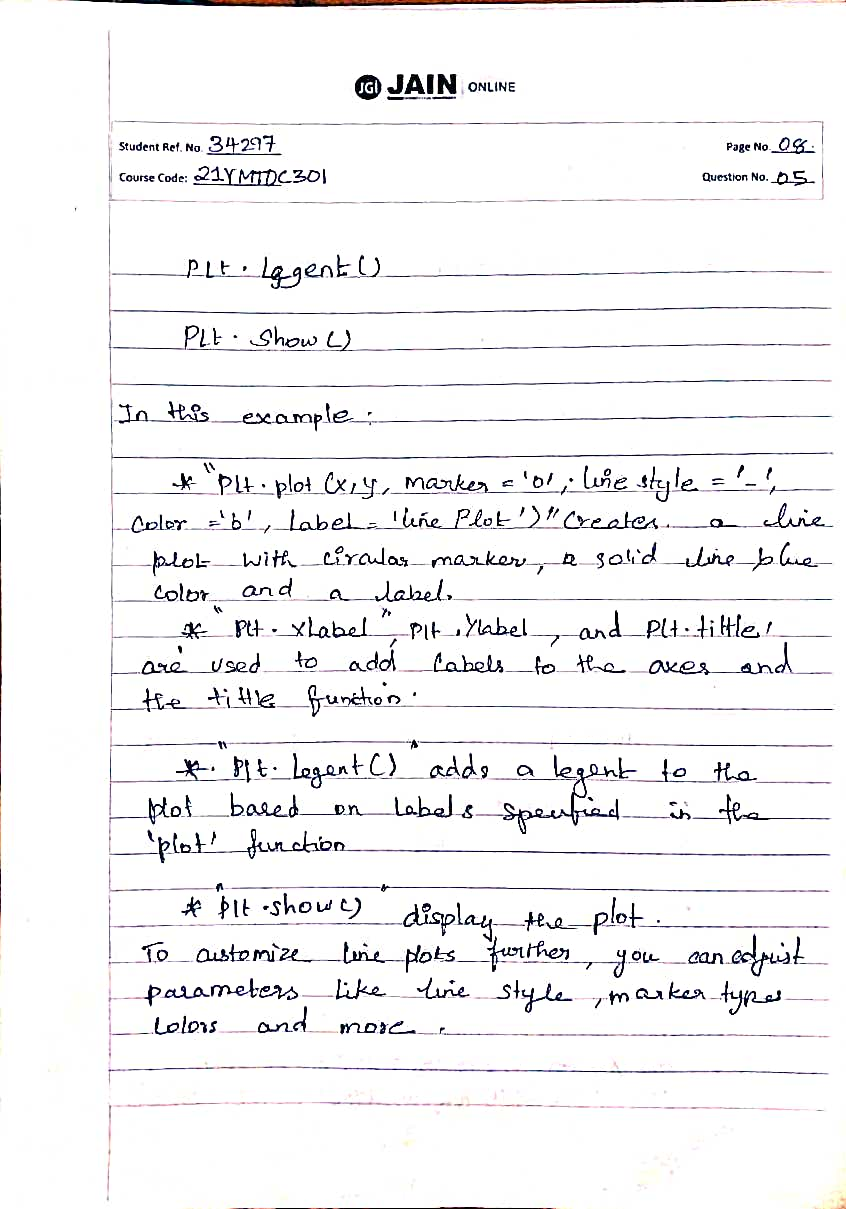 JGI JAIN ONLINE
Student Ref. No. 34297
Page No. 08.
Course Code: 21YMTDC301
Question No. 05
PLt . Leggent ()
PLt . Show ()
In this example :
* "Plt . plot (x, y, marker = 'o', line style = '-',
Color = 'b', Label = 'line Plot')" Creates. a line
plot with circular marker, a solid line blue
Color and a label.
* "Plt . xLabel", Plt . Ylabel, and Plt . tittle'
are used to add labels to the axes and
the tittle function.
*. "Plt . Legent ()" adds a legent to the
plot based on labels specified in the
'plot' function
* "plt . show ()" display the plot .
To customize line plots further, you can adjust
parameters like line style, marker types
Colors and more .